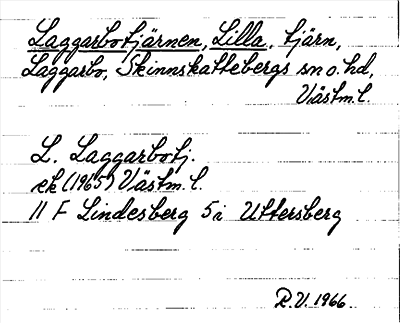 Laggarbotjärnen, Lilla, tjärn,
Laggarbo, Skinnskattebergs sn o. hd,
Västm. l.
L. Laggarbotj.
ek (1965) Västm. l.
11 F Lindesberg 5i Uttersberg
R.V. 1966.